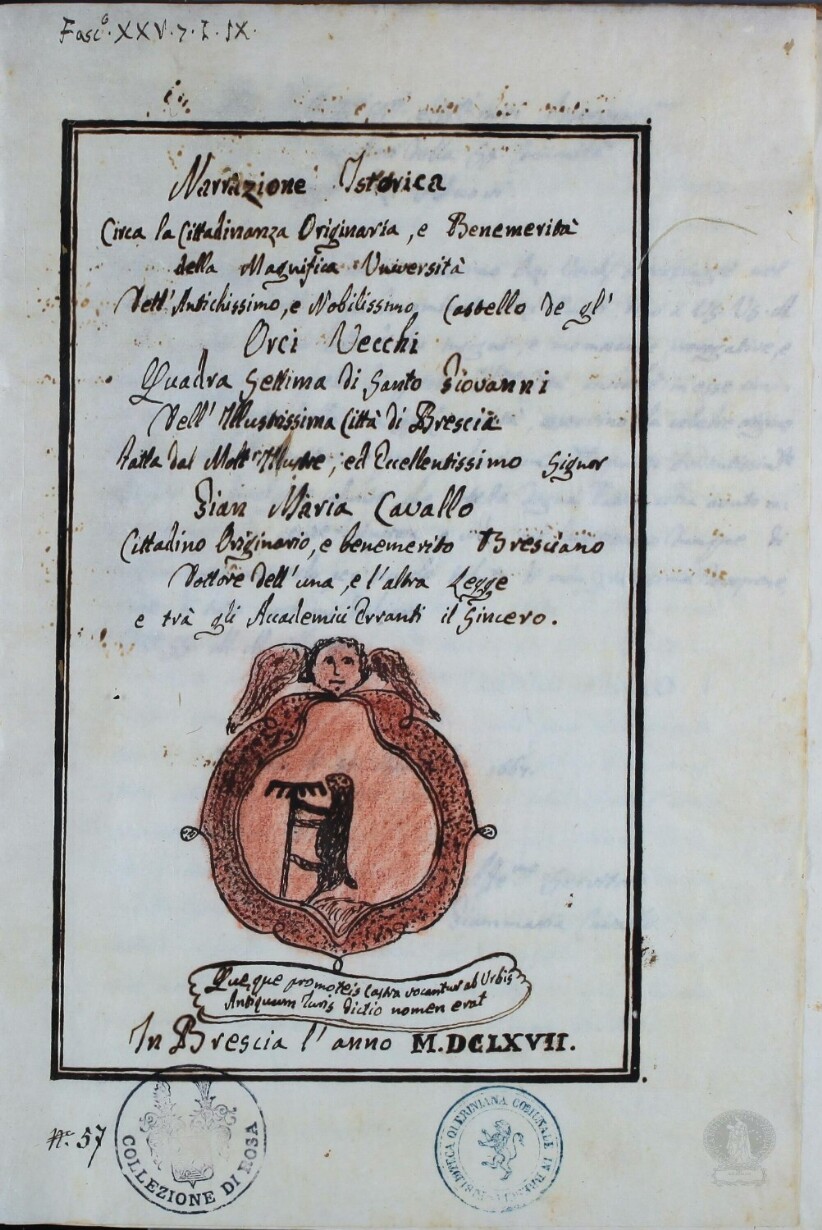 Fasc.º XXV. 7. I. IX.
Narrazione Istorica
Circa la Cittadinanza Originaria, e Benemerità
della Magnifica Università
Dell'Antichissimo, e Nobilissimo Castello de gl'
Orci Vecchi
Quadra Settima di Santo Giovanni
Dell'Illustrissima Città di Brescia
Fatta dal Molt' Illustre, ed Eccellentissimo Signor
Gian Maria Cavallo
Cittadino Originario, e benemerito Bresciano
Dottore dell'una, e l'altra Legge
e trà gli Academici Erranti il Sincero.
Queque promoteis Castra vocantur ab Urbis
Antiquum Iuris dictio nomen erat
In Brescia l'anno M.DCLXVII.
N.º 57
COLLEZIONE DI ROSA
BIBLIOTECA QUERINIANA COMUNALE IN BRESCIA